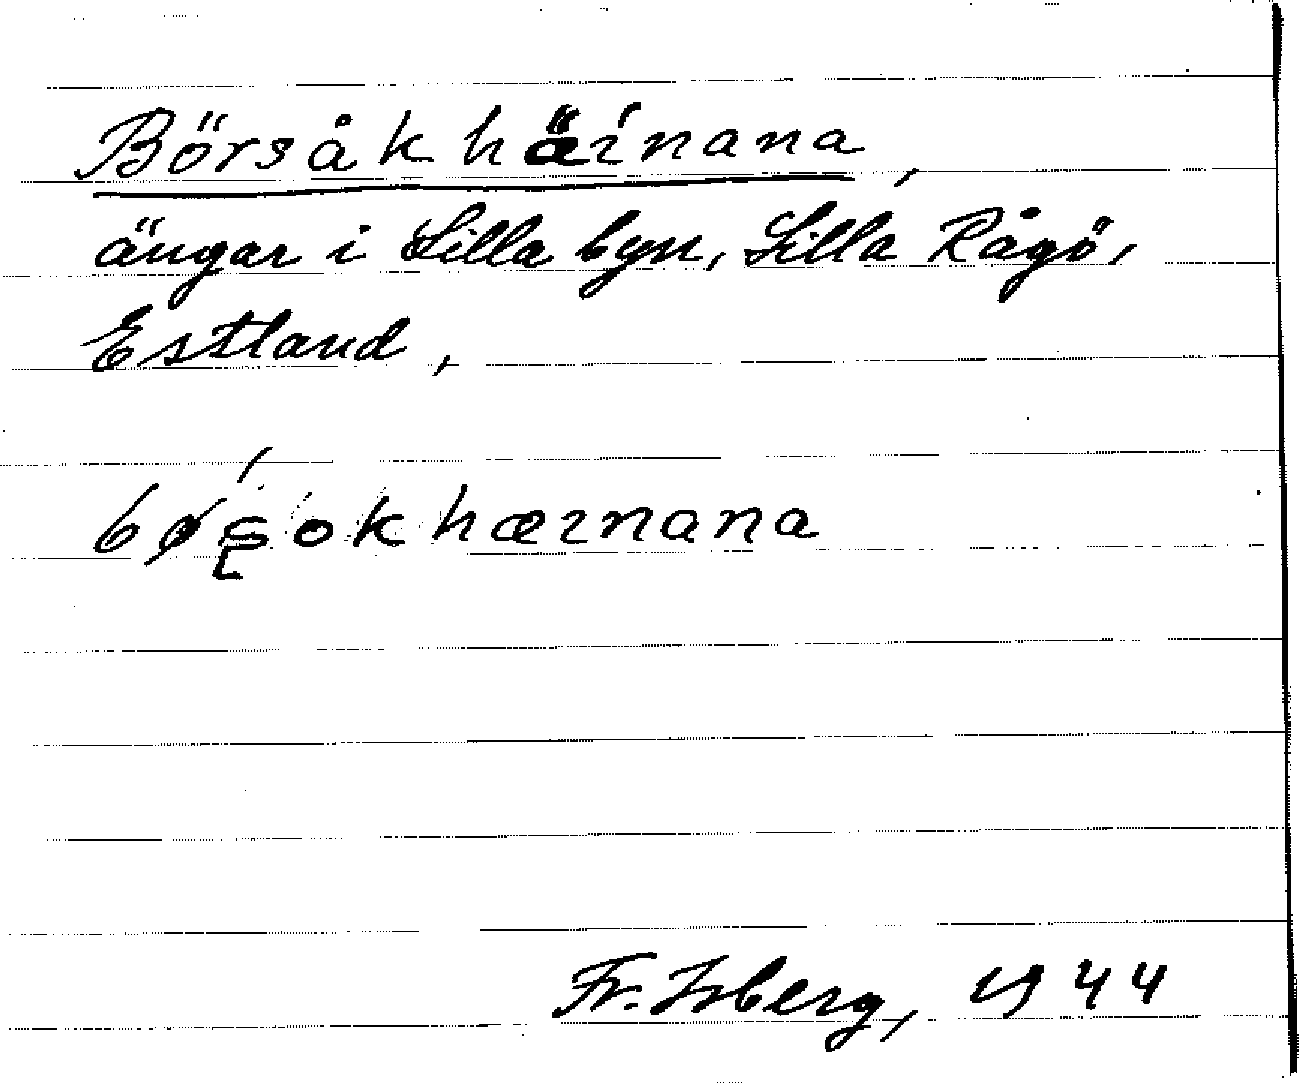 Börsåkhäınana,
ängar i Lilla byn, Lilla Rågö,
Estland,
bøʂokhæınana
Fr. Isberg, 1944